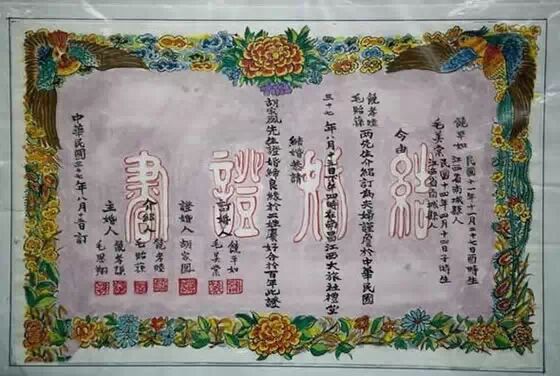 結婚證書
饒平如 江西省南城縣人 民國十一年十一月二十七日酉時生
毛美棠 江西省南昌縣人 民國十四年四月十四日子時生
今由
饒孝睦
毛貽蓀
兩先生介紹訂為夫婦謹詹於中華民國
三十七年八月十五日下午四時在南昌江西大旅社禮堂
結婚恭請
胡家鳳先生證婚締良緣於二姓慶好合於百年此證
訂婚人 饒平如
毛美棠
證婚人 胡家鳳
介紹人 饒孝睦
毛貽蓀
主婚人 饒孝謙
毛思翔
中華民國三十七年八月十五日訂